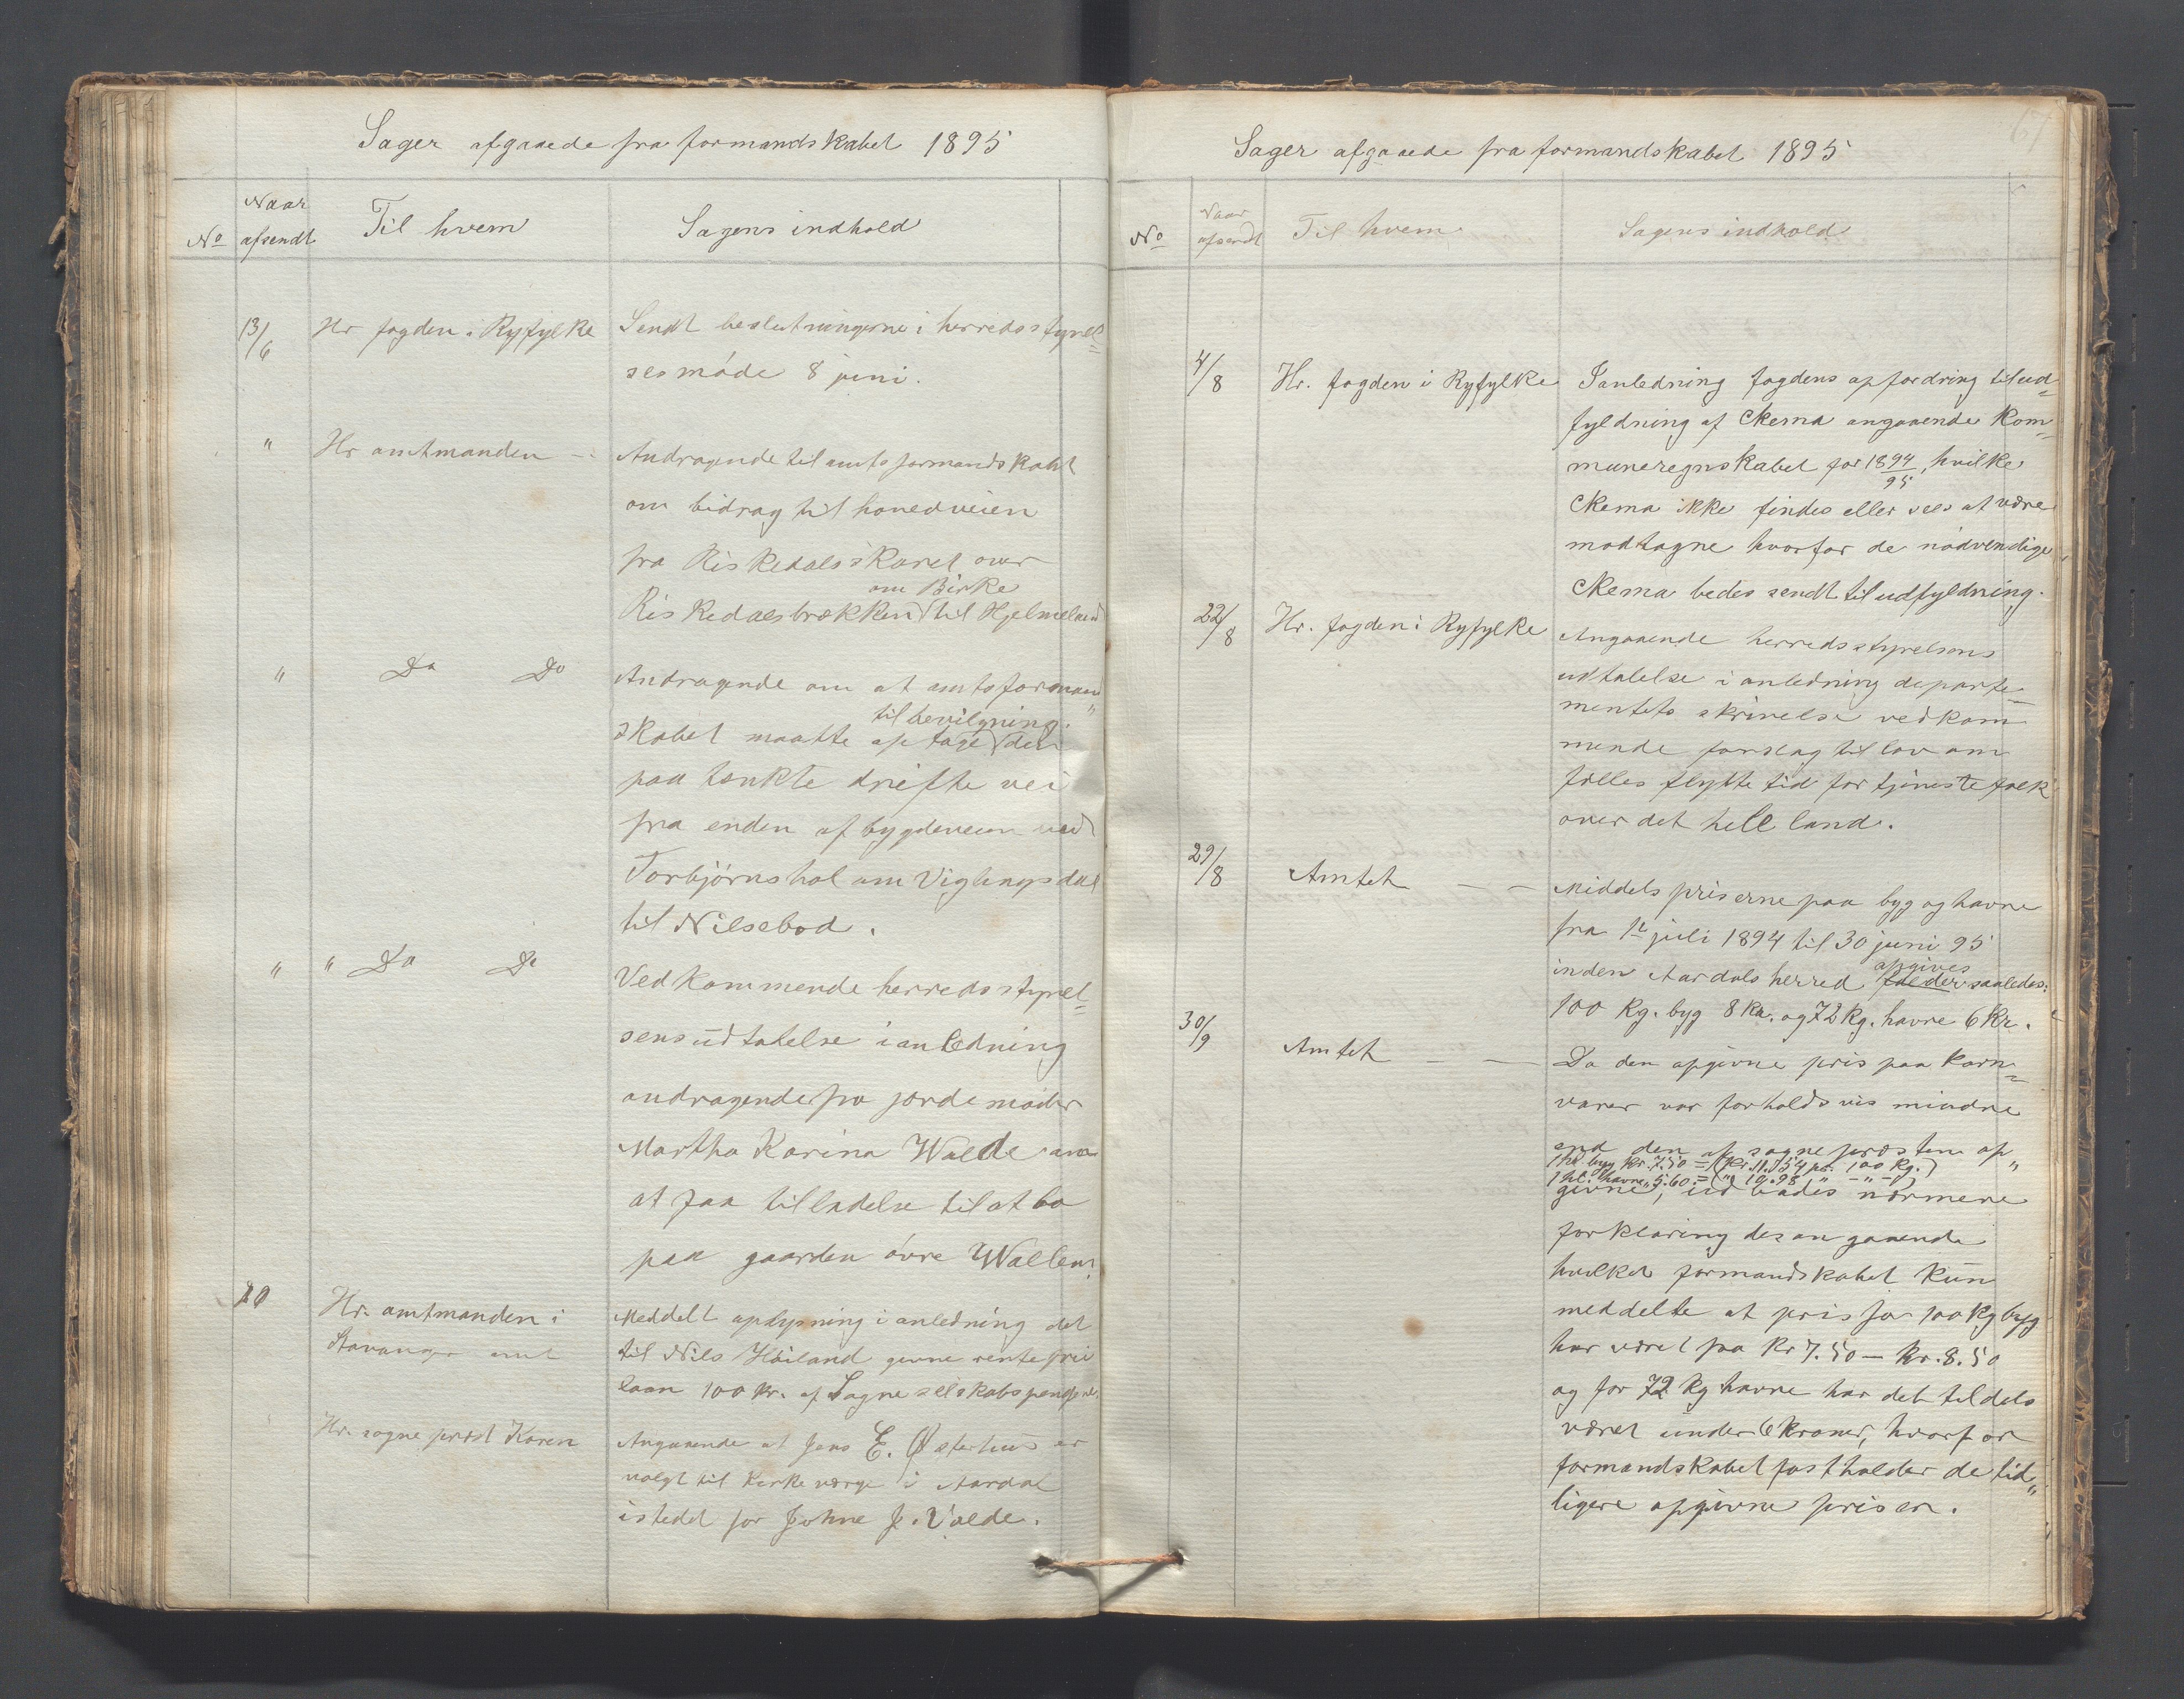 Sager afgaaede fra formandskabet 1895
No
Naar afsendt
Til hvem
Sagens indhold
13/6 Hr fogden i Ryfylke Sendt beslutningerne i herredsstyrel=
sesmöde 8 juni.
" Hr amtmanden - Andragende til amtsformandskabet
om bidrag til hovedveien
fra Riskedalsskaret over
om Birke
Riskedalsbrækken til Hjelmeland
" Do Do Andragende om at amtsformand
til bevilgning.
skabet maatte optage den
paa tænkte drifte vei
fra enden af bygdeveien ved
Torbjörnshol om Viglengsdal
til Nilsebod.
" " Do Do Vedkommende herredsstyrel=
sens udtalelse i anledning
andragende fra jordemoder
Martha Karina Walde om
at faa tilladelse til at bo
paa gaarden övre Wallem.
20 Hr. amtmanden i Meddelt oplysning i anledning det
Stavanger amt til Nils Höiland givne rentefrie
laan 100 kr. af Sogneselskabspengene.
Hr. sogneprest Koren Angaaende at Jens E. Østerhus er
valgt til kirkeværge i Aardal
istedet for Johne J. Valde.
67
Sager afgaaede fra formandskabet 1895
No
Naar afsendt
Til hvem
Sagens indhold
4/8 Hr. fogden i Ryfylke I anledning fogdens opfordring til ud=
fyldning af skema angaaende kom=
muneregnskabet for 1894/95, hvilke
skema ikke findes eller sees at være
modtagne hvorfor de nödvendige
skema bedes sendt til udfyldning.
22/8 Hr. fogden i Ryfylke Angaaende herredsstyrelsens
udtalelse i anledning departe=
mentets skrivelse vedkom
mende forslag til lov om
fælles flytte tid for tjenestefolk
over det hele land.
29/8 Amtet - - Middelspriserne paa byg og havre
fra 1ste juli 1894 til 30 juni 95
opgives
inden Aardals herred falder saaledes:
100 Kg. byg 8 Kr. og 72 Kg. havre 6 Kr.
30/9 Amtet - - Da den opgivne pris paa korn=
varer var forholdsvis mindre
end den af sognepresten op"
1 hl byg kr. 7.50 = (kr. 11.54 pr. 100 Kg.)
1 hl. havre " 5.60 = (" 10.98 " - " -)
givne, ud bades nærmere
forklaring desangaaende
hvilket formandskabet kun
meddelte at pris for 100 Kg byg
har været fra Kr 7.50 - Kr. 8.50
og for 72 Kg havre har det tildels
været under 6 kroner, hvorfor
formandskabet fastholder de tid"
ligere opgivne priser.